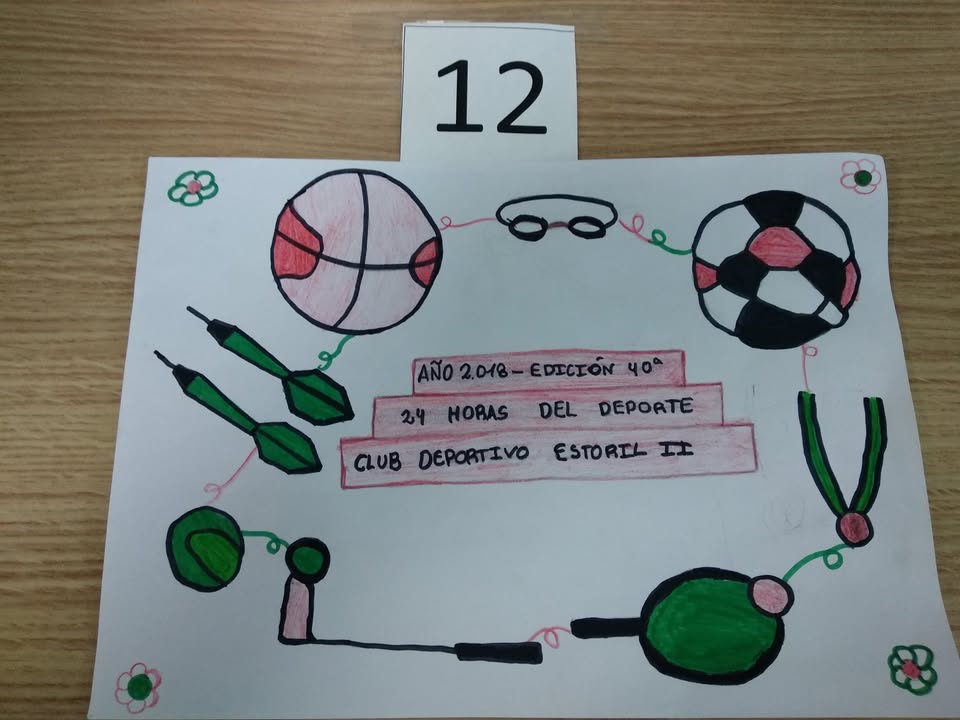 12
AÑO 2.018 - EDICIÓN 40ª
24 HORAS DEL DEPORTE
CLUB DEPORTIVO ESTORIL II